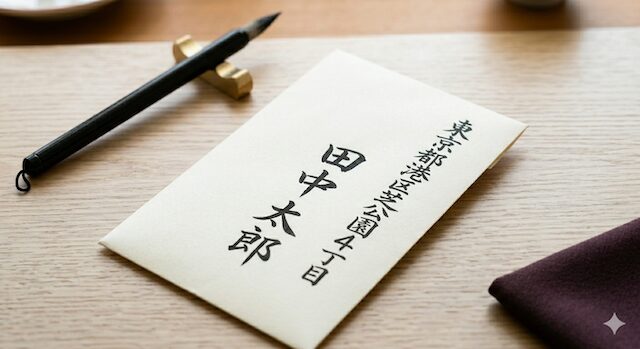 東京都港区芝公園4丁目
田中太郎